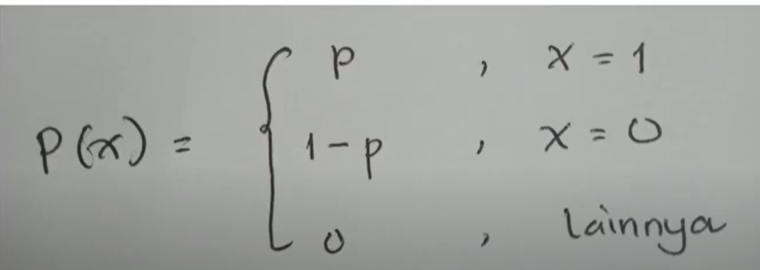 p , x = 1
P(x) = { 1-p , x = 0
0 , lainnya